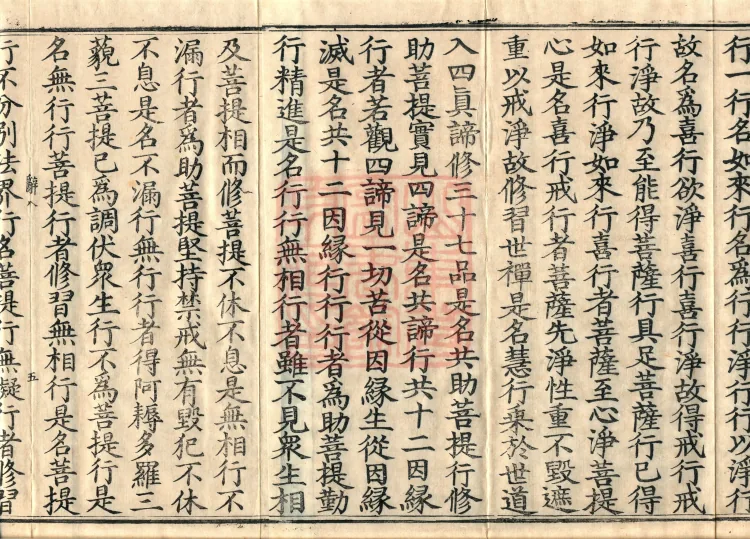 行一行名如來行名爲行行淨行行以淨行
故名爲喜行欲淨喜行喜行淨故得戒行戒
行淨故乃至能得菩薩行具足菩薩行已得
如來行淨如來行喜行者菩薩至心淨菩提
心是名喜行戒行者菩薩先淨性重不毀遮
重以戒淨故修習世禪是名慧行乘於世道
入四眞諦修三十七品是名共助菩提行修
助菩提實見四諦是名共諦行共十二因縁
行者若觀四諦見一切苦從因縁生從因縁
滅是名共十二因縁行行行者爲助菩提勤
行精進是名行行無相行者雖不見衆生相
及菩提相而修菩提不休不息是無相行不
漏行者爲助菩提堅持禁戒無有毀犯不休
不息是名不漏行無行行者得阿耨多羅三
藐三菩提已爲調伏衆生行不爲菩提行是
名無行行菩提行者修習無相行是名菩提
辭八 五
行不分別法界行名菩提行無礙行者修習